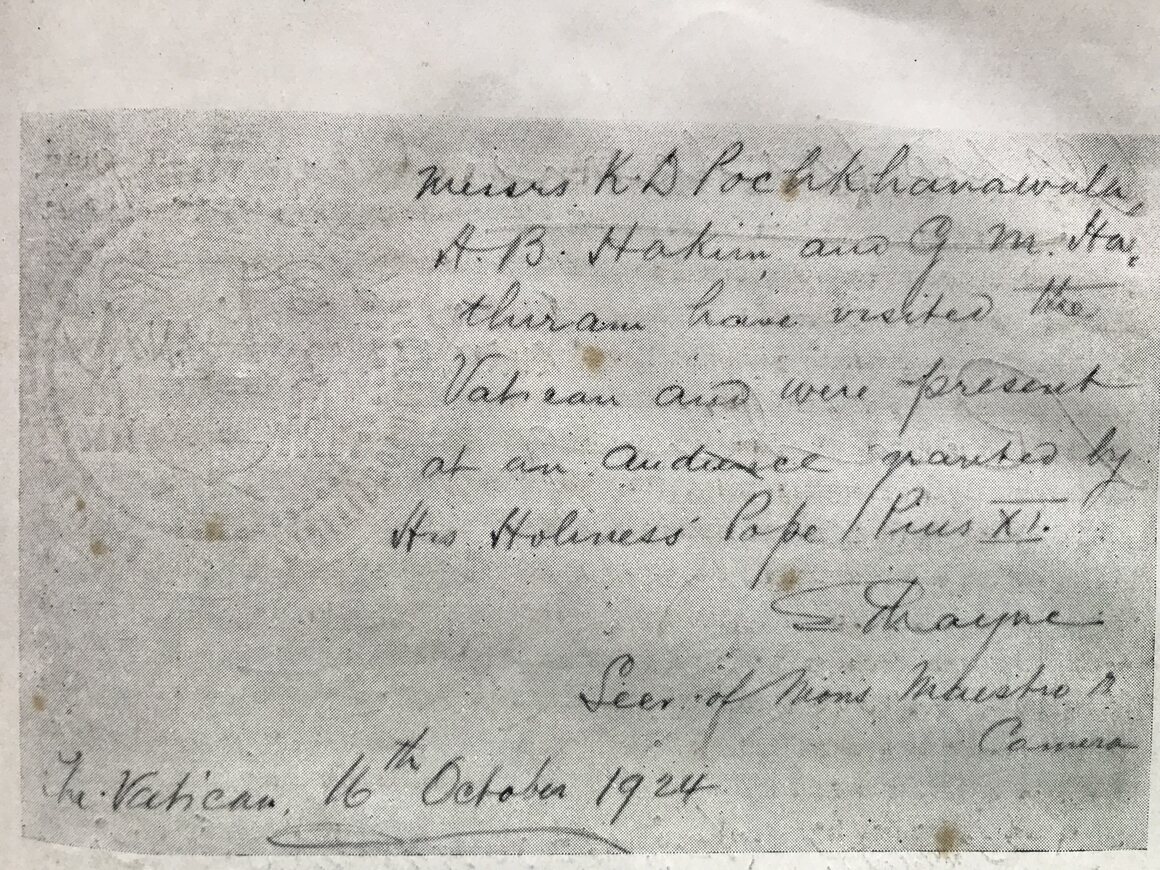 Messrs K. D Pochkhanawala,
A. B. Hakim and G. M. Ha-
thiram have visited the
Vatican and were present
at an audience granted by
His Holiness Pope Pius XI.
Secr. of Mons Maestro di
Camera
The Vatican, 16th October 1924